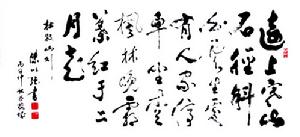 遠上寒山
石徑斜
白雲生處
有人家停
車坐愛
楓林晚霜
葉紅于二
月花
杜牧山行